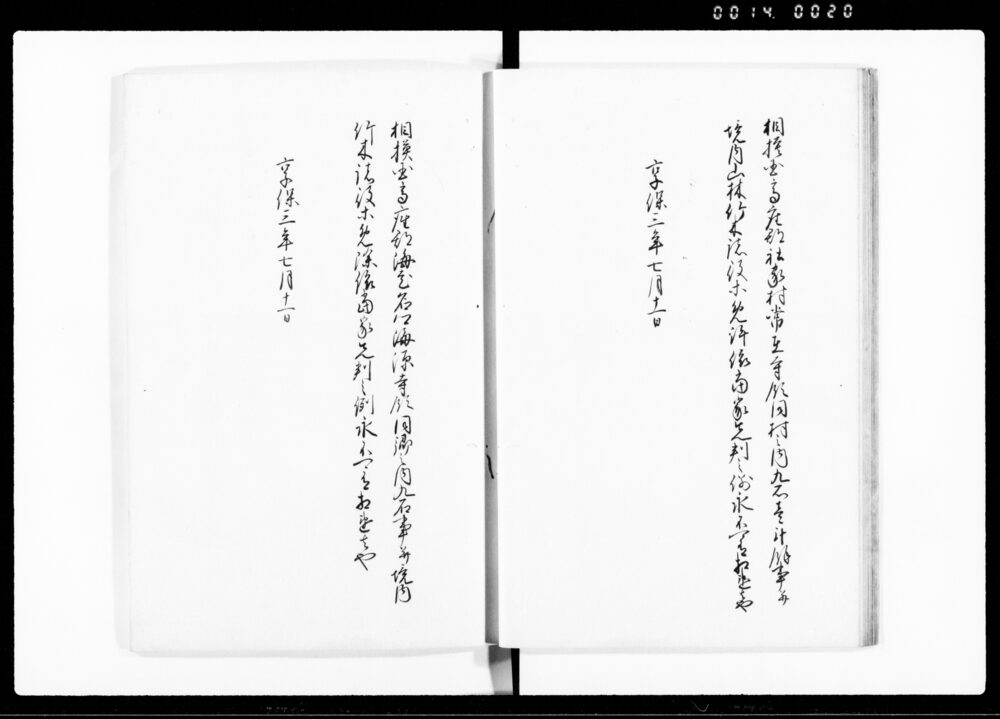 0014 0020
相摸国高座郡社家村常在寺領同村之内九石壱斗余事并
境内山林竹木諸役等免許依当家先判之例永不可有相違者也
享保三年七月十一日
相摸国高座郡海老名郷海源寺領同郷之内九石事并境内
竹木諸役等免除依当家先判之例永不可有相違者也
享保三年七月十一日